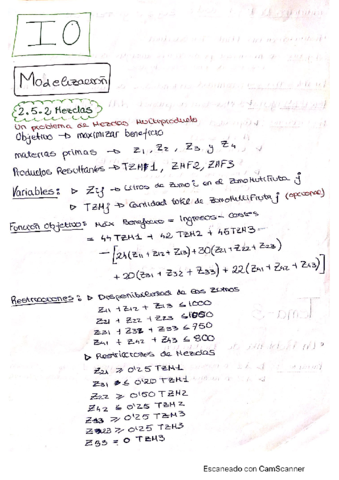 IO
Modelización
2.5.2 Mezclas
Un problema de Mezclas Multiproducto
Objetivo → maximizar beneficio
materias primas → Z1, Z2, Z3 y Z4
Productos Resultantes → ZMF2, ZMF3
Variables: ▷ Zij → Litros de Zumo i en el ZumoMultiFruta j
▷ TZMj → Cantidad total de ZumoMultiFruta j (opcional)
Función Objetivo: Máx Beneficio = Ingresos - costes
= 44 TZM1 + 42 TZM2 + 45 TZM3 -
-[24(Z11 + Z12 + Z13) + 30(Z21 + Z22 + Z23)
+ 20(Z31 + Z32 + Z33) + 22(Z41 + Z42 + Z43)]
Restricciones: ▷ Disponibilidad de los Zumos
Z11 + Z12 + Z13 ≤ 1000
Z21 + Z22 + Z23 ≤ 1050
Z31 + Z32 + Z33 ≤ 750
Z41 + Z42 + Z43 ≤ 800
▷ Restricciones de Mezclas
Z21 ≥ 0'25 TZM1
Z31 ≤ 0'20 TZM1
Z22 ≥ 0'50 TZM2
Z42 ≤ 0'25 TZM2
≥ 0'25 TZM3
≥ 0'25 TZM3
= 0 TZM3
Escaneado con CamScanner